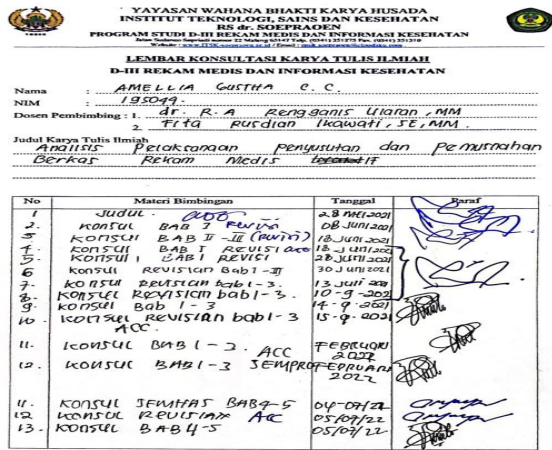 YAYASAN WAHANA BHAKTI KARYA HUSADA
INSTITUT TEKNOLOGI, SAINS DAN KESEHATAN
RS dr. SOEPRAOEN
PROGRAM STUDI D-III REKAM MEDIS DAN INFORMASI KESEHATAN
LEMBAR KONSULTASI KARYA TULIS ILMIAH
D-III REKAM MEDIS DAN INFORMASI KESEHATAN
Nama : AMELLIA GUSTHA C. C.
NIM : 195049.
Dosen Pembimbing : 1. dr. R. A Rengganis Ularan, MM
2. Fita Rusdian Ikawati, SE, MM.
Judul Karya Tulis Ilmiah
Analisis Pelaksanaan Penyusutan dan Pemusnahan
Berkas Rekam Medis
No Materi Bimbingan Tanggal Paraf
1 Judul. acc 28 MEI 2021
2. Konsul BAB I Revisi 08 JUNI 2021
3 KONSUL BAB II - III (Revisi) 18 JUNI 2021
4. KONSUL BAB I REVISI acc 18 JUNI 2021
5. KONSUL BAB I REVISI 28 JUNI 2021
6 konsul REVISIAN Bab 1 - III 30 JUNI 2021
7. konsul REVISIAN bab 1 - 3. 13 JUNI 2021
8. KONSUL REVISIAN bab 1 - 3. 10 - 9 - 2021
9. konsul Bab 1 - 3 14 - 9 - 2021
10. KONSUL REVISIAN bab 1 - 3 15 - 9. 2021
ACC.
11. KONSUL BAB 1 - 3. ACC FEBRUARI 2022
12. KONSUL BAB 1 - 3 SEMPRO FEBRUARI 2022
11. KONSUL SEMHAS BAB 4 - 5 04-07/22
12 KONSUL REVISIAN ACC 05/07/22
13. KONSUL BAB 4 - 5 05/07/22